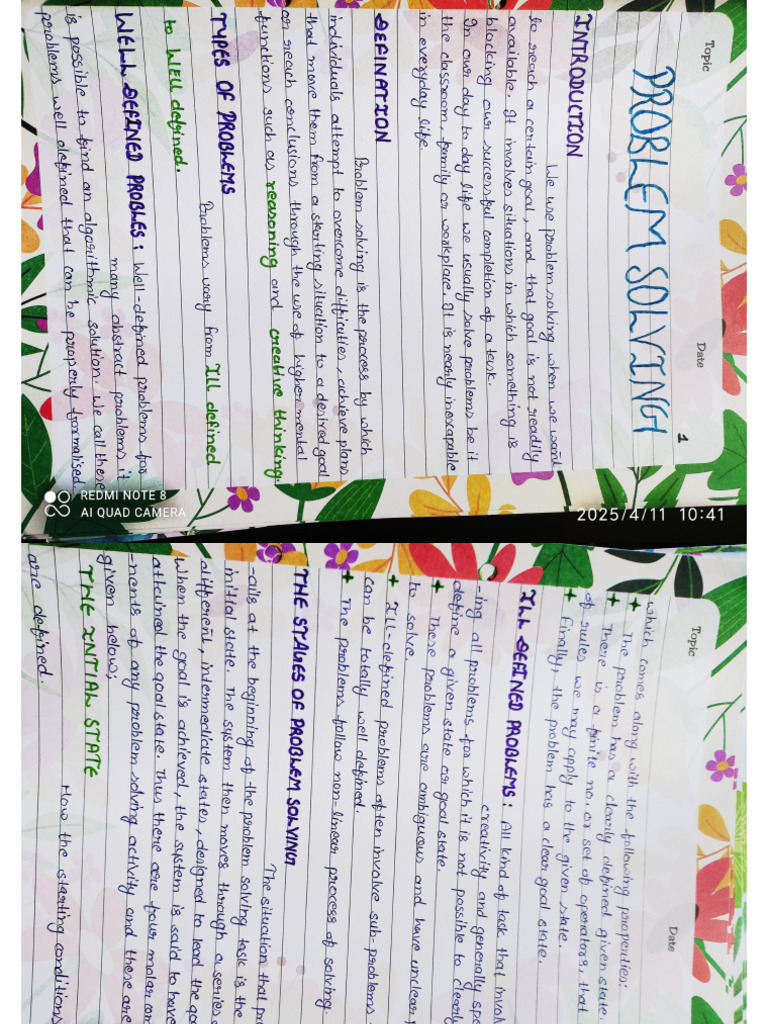 Topic
Date
1
PROBLEM SOLVING
INTRODUCTION
We use problem solving when we want
to reach a certain goal, and that goal is not readily
available. It involves situations in which something is
blocking our successful completion of a task.
In our day to day life we usually solve problems be it
the classroom, family or workplace. It is nearly inexapable
in everyday life.
DEFINATION
Problem solving is the process by which
individuals attempt to overcome difficulties, achieve plans
that move them from a starting situation to a desired goal
or reach conclusions through the use of higher mental
functions such as reasoning and creative thinking.
TYPES OF PROBLEMS
Problems vary from Ill defined
to WELL defined.
WELL DEFINED PROBLES: Well-defined problems for
many abstract problems it
is possible to find an algorithmic solution. We call these
problems well defined that can be properly formalised
REDMI NOTE 8
AI QUAD CAMERA
2025/4/11 10:41
Topic
Date
which comes along with the following properties:
+ The problem has a clearly defined given state.
+ There is a finite no. or set of operators, that
of rules we may apply to the given state.
+ Finally, the problem has a clear goal state.
ILL DEFINED PROBLEMS: All kind of task that involv
creativity and generally spe
-ing all problems for which it is not possible to clearly
define a given state or goal state.
+ These problems are ambiguous and have unclear
to solve.
+ Ill-defined problems often involve sub-problems
can be totally well defined.
+ The problems follow non-linear process of solving.
THE STAGES OF PROBLEM SOLVING
The situation that pr
-ails at the beginning of the problem solving task is the
initial state. The system then moves through a series
different, intermediate states, designed to lead the go
When the goal is achieved, the system is said to have
attained the goal state. Thus there are four molar com
-nents of any problem solving activity and these are
given below;
THE INTIAL STATE
How the starting conditions
are defined.